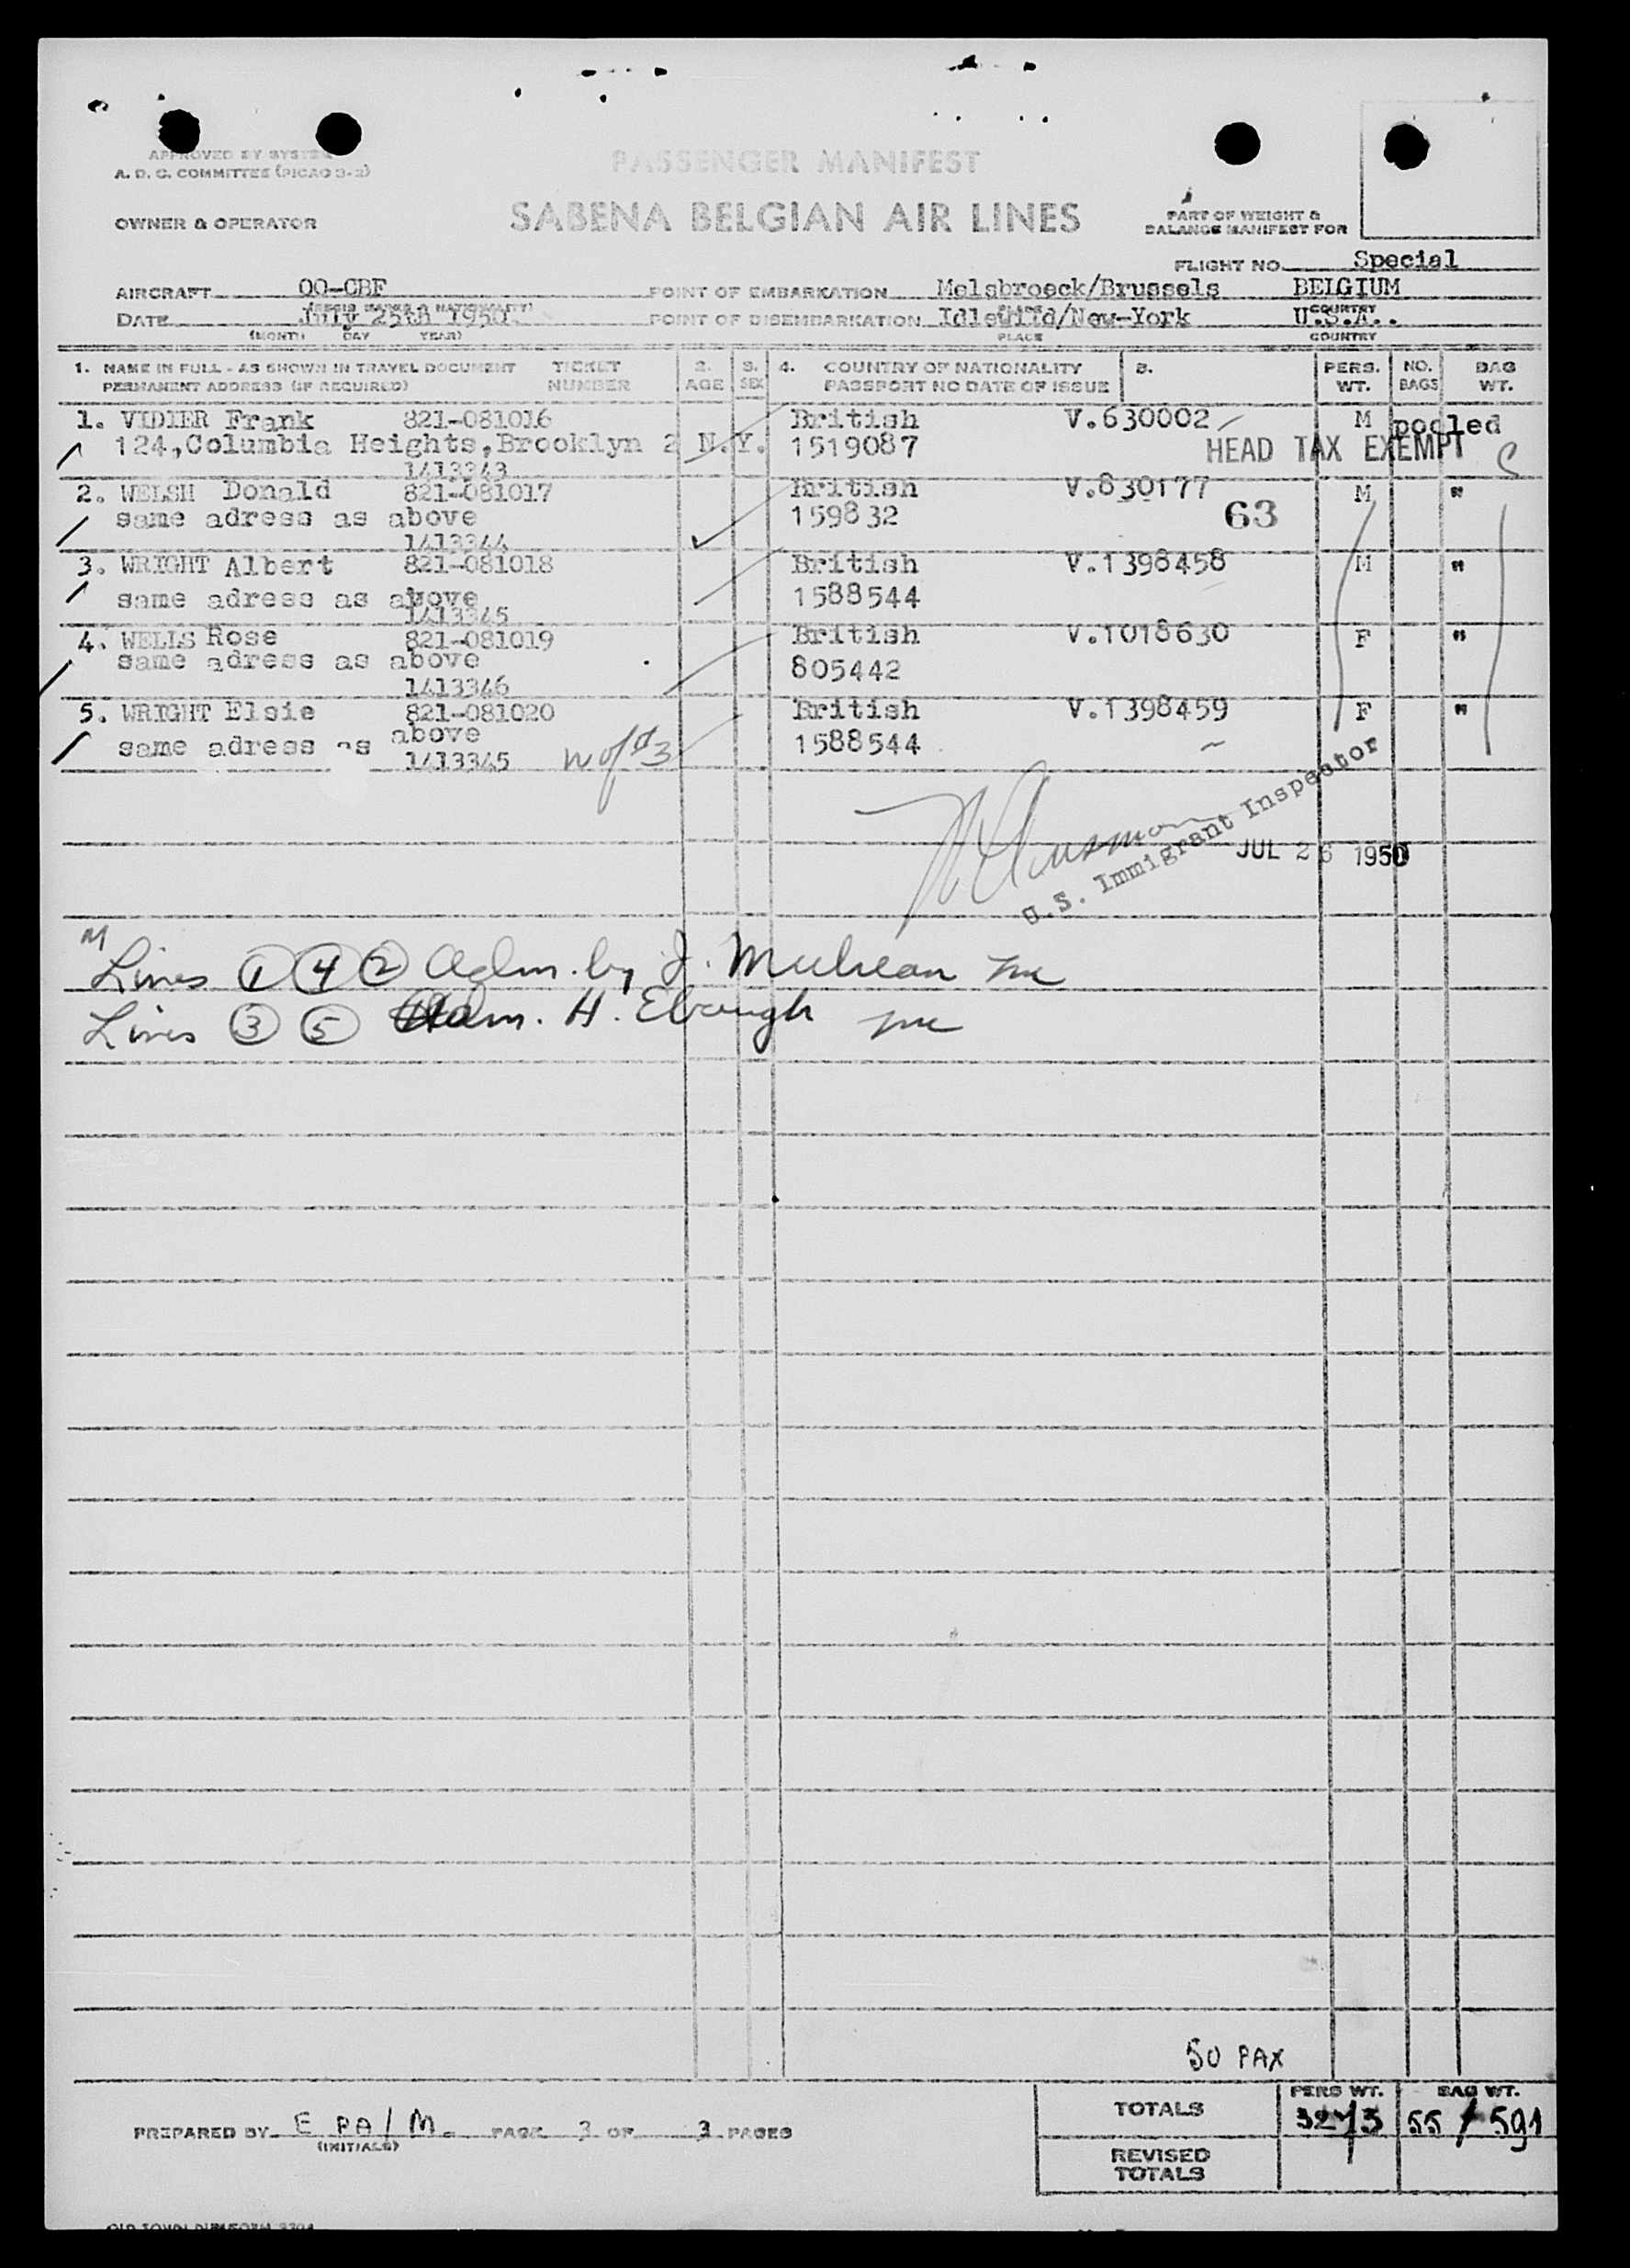 APPROVED BY SYSTEM
A. D. C. COMMITTEE (PICAO 3-2)
PASSENGER MANIFEST
OWNER & OPERATOR
SABENA BELGIAN AIR LINES
PART OF WEIGHT &
BALANCE MANIFEST FOR
FLIGHT NO. Special
AIRCRAFT OO-CBF POINT OF EMBARKATION Melsbroeck/Brussels BELGIUM
DATE July 25th 1950. POINT OF DISEMBARKATION Idlewild/New-York U.S.A..
(MONTH DAY YEAR) PLACE COUNTRY
1. NAME IN FULL - AS SHOWN IN TRAVEL DOCUMENT TICKET 2. 3. 4. COUNTRY OF NATIONALITY 5. PERS. NO. BAG
PERMANENT ADDRESS (IF REQUIRED) NUMBER AGE SEX PASSPORT NO DATE OF ISSUE WT. BAGS WT.
1. VIDIER Frank 821-081016 British V.630002 M pooled
124,Columbia Heights,Brooklyn 2 N.Y. 1519087 HEAD TAX EXEMPT
1413343
2. WELSH Donald 821-081017 British V.830177 M "
same adress as above 159832 63
1413344
3. WRIGHT Albert 821-081018 British V.1398458 M "
same adress as above 1588544
1413345
4. WELLS Rose 821-081019 British V.1018630 F "
same adress as above 805442
1413346
5. WRIGHT Elsie 821-081020 British V.1398459 F "
same adress as above 1588544
1413345 w of #3
U.S. Immigrant Inspector
JUL 26 1950
M
Lines 1 4 2 Adm. by J. Mulrean
Lines 3 5 Adm. H. Ebaugh
50 PAX
PERS WT. BAG WT.
TOTALS 3273 55 / 591
PREPARED BY E PA/M. PAGE 3 OF 3 PAGES
(INITIALS)
REVISED
TOTALS